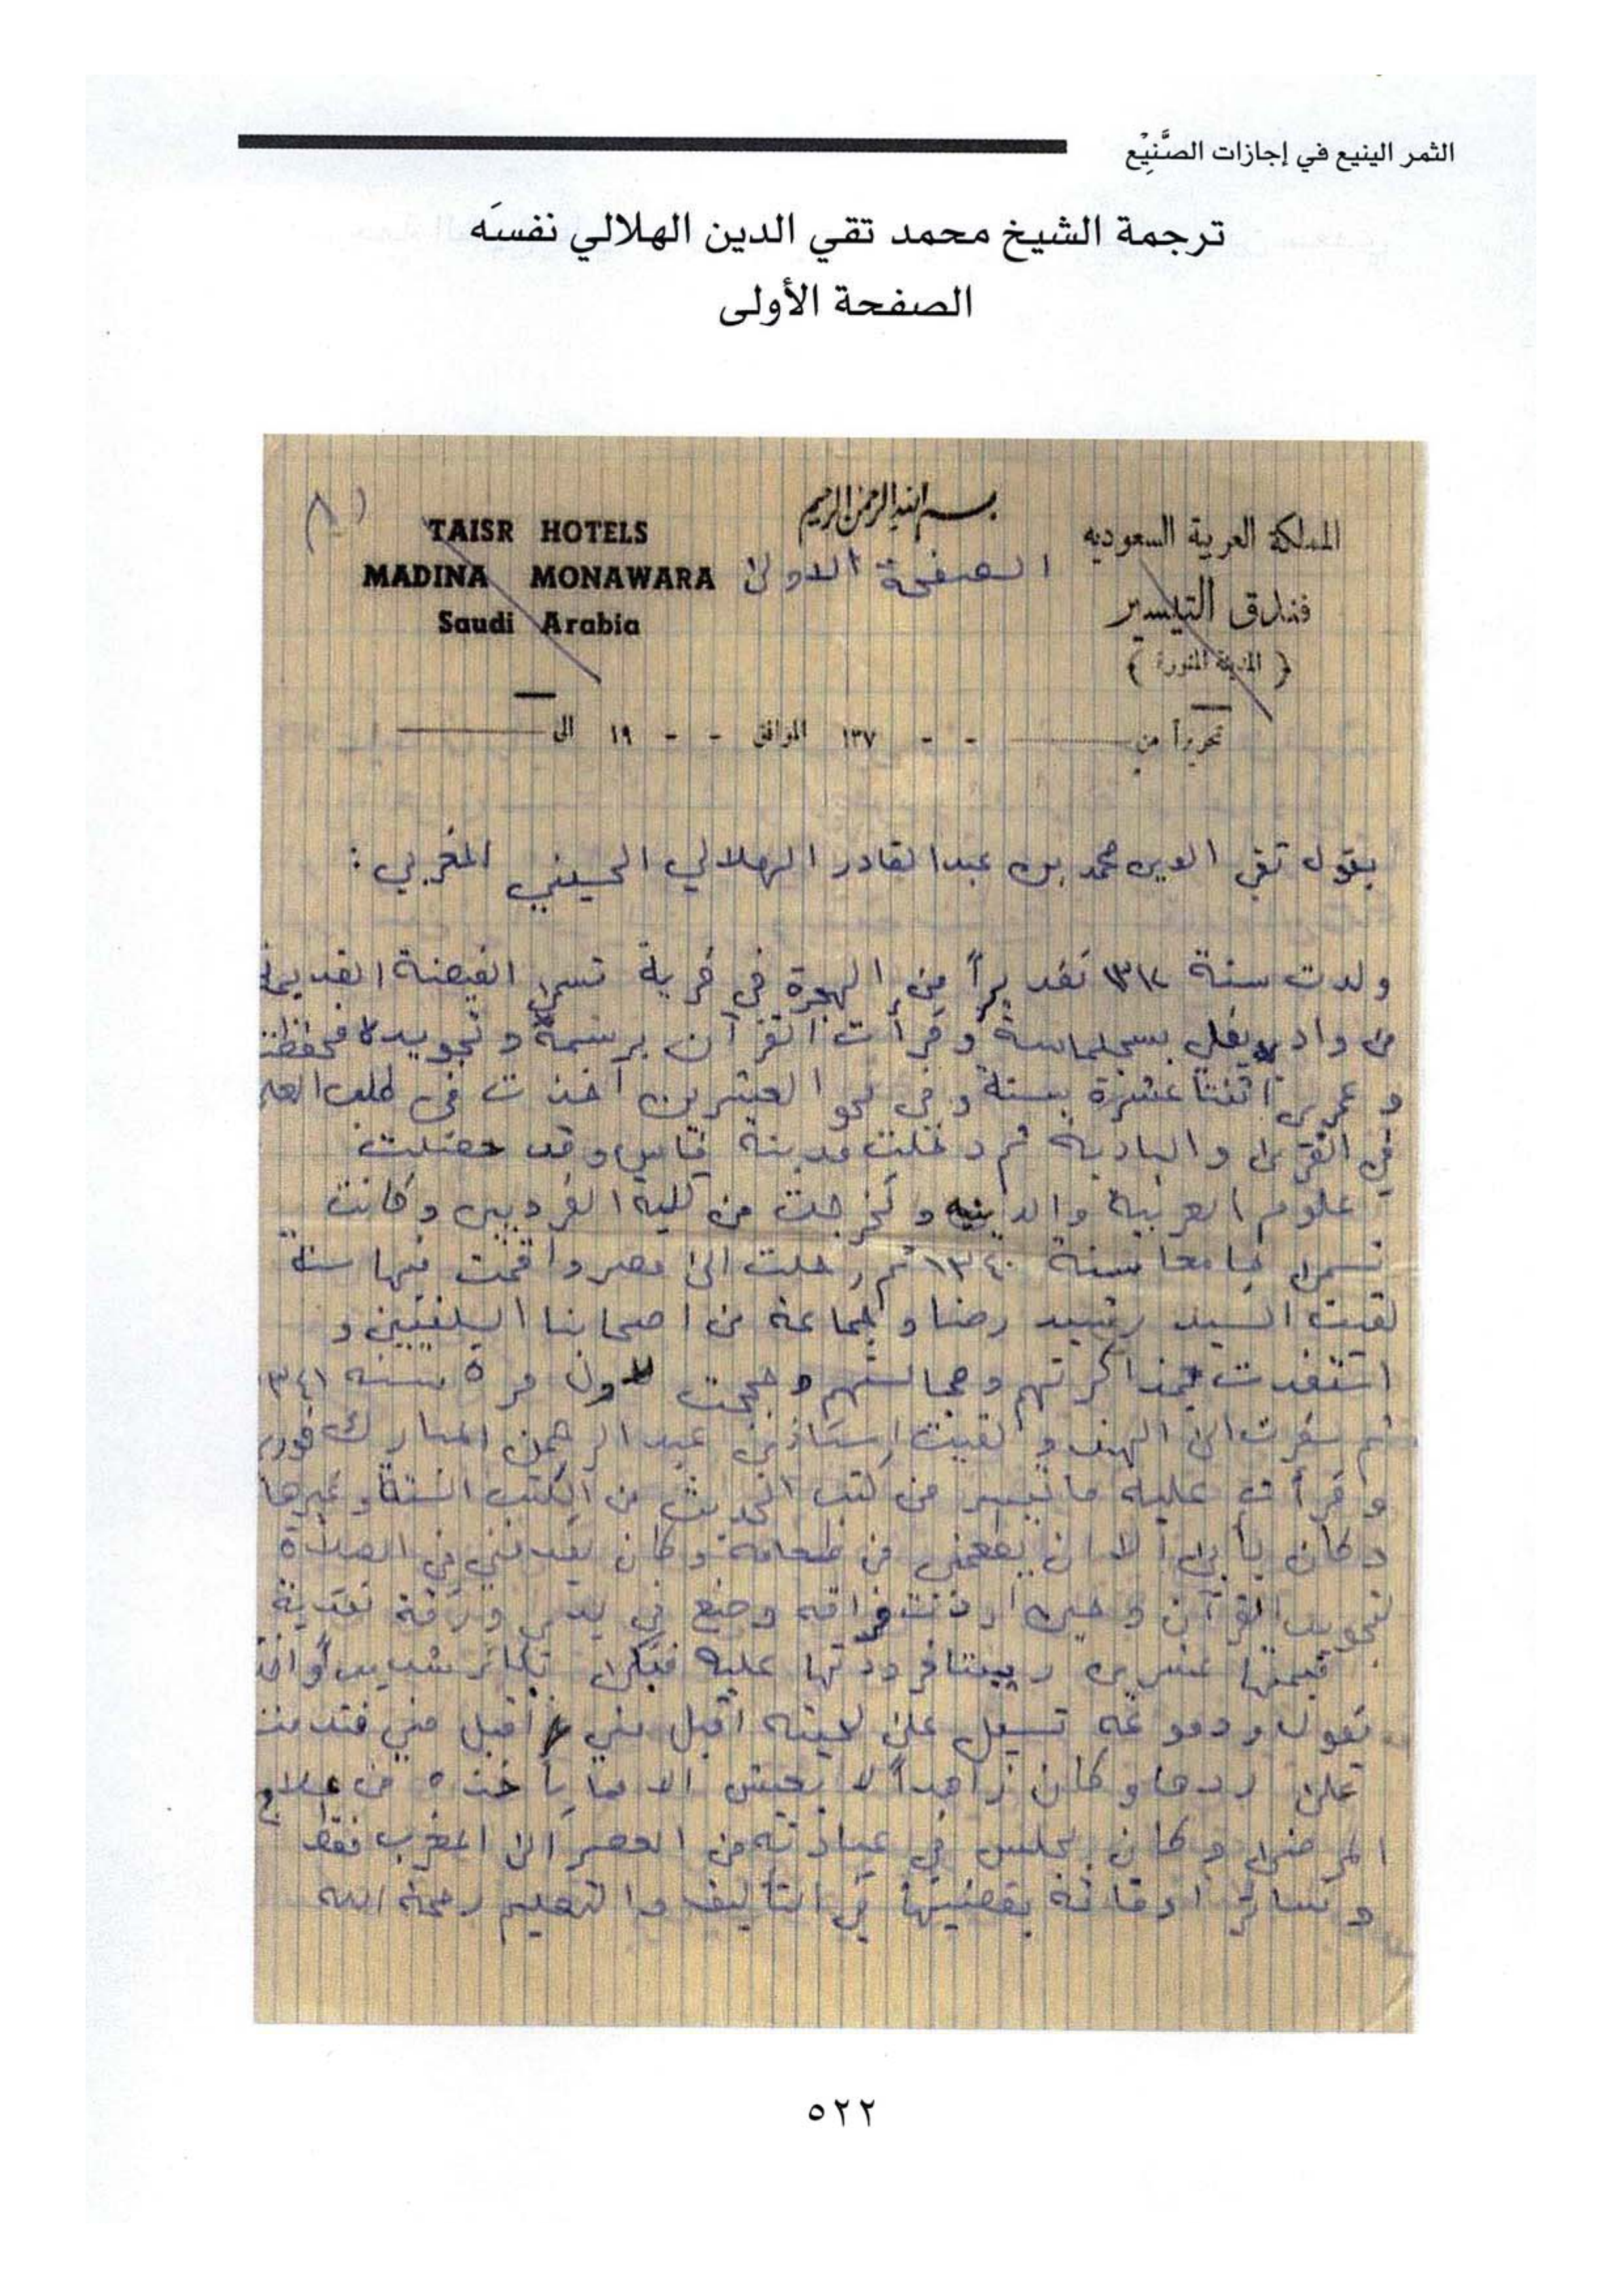 الثمر الينيع في إجازات الصَّنِيْع
ترجمة الشيخ محمد تقي الدين الهلالي نفسَه
الصفحة الأولى
بسم الله الرحمن الرحيم
المملكة العربية السعوديه
TAISR HOTELS
الصفحة الاولى
MADINA MONAWARA
فنادق التيسير
Saudi Arabia
( المدينة المنورة )
تحريراً من - - ١٣٧ الموافق - - ١٩ الى
يقول تقي الدين محمد بن عبدالقادر الهلالي الحسيني المغربي :
ولدت سنة تقديراً من الهجرة في قرية تسمى الفيضة القديمة
من وادي يفلي بسجلماسة وقرأت القرآن برسمه وتجويده فحفظت
وعمري اثنتا عشرة سنة وفي نحو العشرين أخذت في طلب العلم
في القرى والبادية ثم دخلت مدينة فاس وقد حصلت
علوم العربية والدينيه وتخرجت من كلية القرويين وكانت
تسمى جامعا سنة ١٣٤٠ ثم رحلت الى مصر واقمت فيها سنة
لقيت السيد رشيد رضا وجماعة من اصحابنا السلفيين و
استفدت بمذاكرتهم ومجالستهم وحججت لاول مرة سنه ١٣٤١
ثم سفرت الى الهند ولقيت استاذي عبد الرحمن المباركفوري
وقرأت عليه ما تيسر من كتب الحديث من الكتب الستة وغيرها
وكان يأبى الا ان يطعمني من طعامه وكان يقدمني في الصلاة
لتجويد القرآن وحين اردت فراقه وضع في يدي ورقة نقدية
قيمتها عشرين ربيتا فرددتها عليه فبكى بكاء شديداً واخذ
يقول ودموعه تسيل على لحيته اقبل مني اقبل مني فندمت
على ردها وكان زاهداً لا يعيش الا مما يأخذه من علاج
المرضى وكان يجلس في عيادته من العصر الى المغرب فقط
وسائر اوقاته يقضيها في التأليف والتعليم رحمة الله
٥٢٢